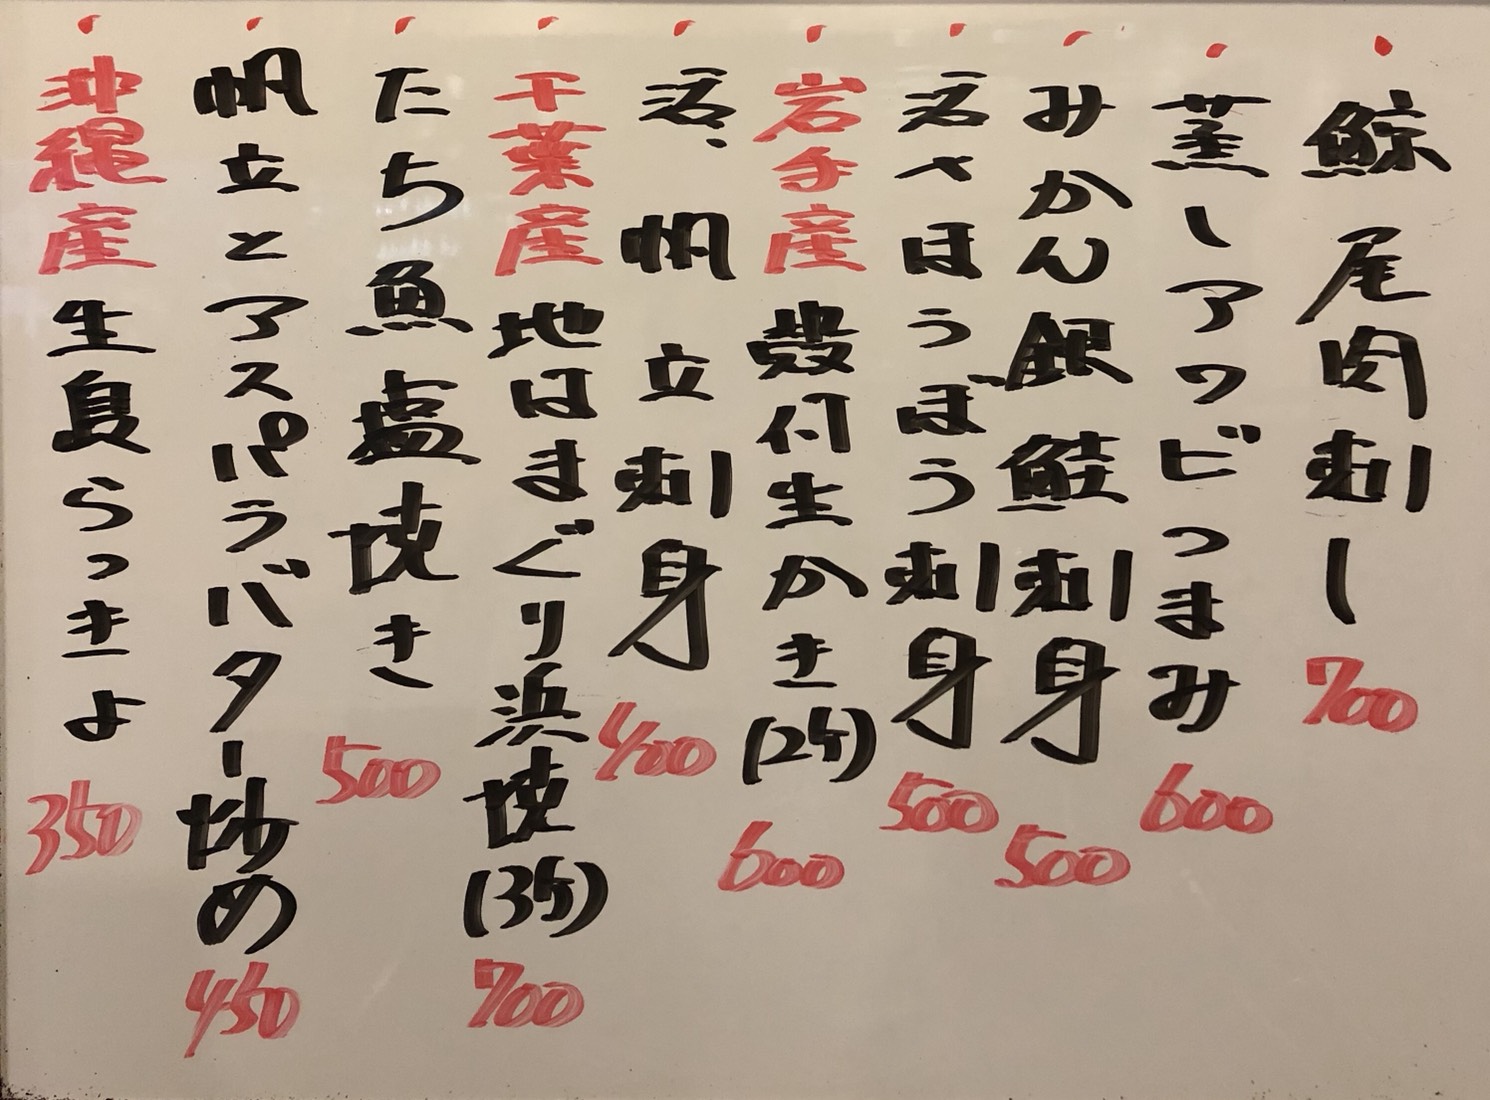 鯨尾肉刺し 700
蒸しアワビつまみ 600
みかん銀鮭刺身 500
活〆ほうぼう刺身 500
岩手産 殻付生かき(2ケ) 600
活、帆立刺身 400
千葉産 地はまぐり浜焼(3ケ) 700
たち魚塩焼き 500
帆立とアスパラバター炒め 450
沖縄産 生島らっきょ 350